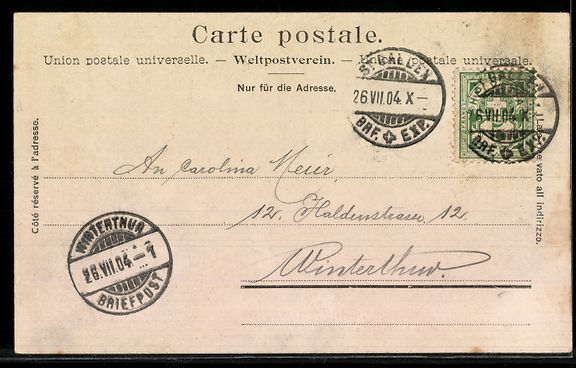 Carte postale.
Union postale universelle. — Weltpostverein. — Unione postale universale.
Nur für die Adresse.
ST GALLEN
26.VII.04.X—
BRF. EXP.
GALLEN
26.VII.04.X—
BRF. EXP.
Côté réservé à l'adresse.
lato all indirizzo.
An Carolina Meier,
12. Haldenstrasse, 12.
Winterthur.
WINTERTHUR
26.VII.04.—7
BRIEFPOST